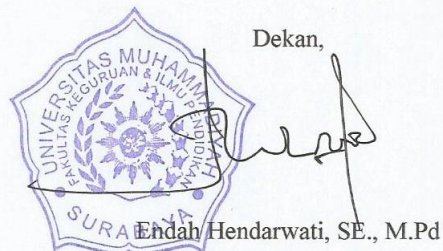 Dekan,
UNIVERSITAS MUHAMMADIYAH
FAKULTAS KEGURUAN & ILMU PENDIDIKAN
SURABAYA
Endah Hendarwati, SE., M.Pd